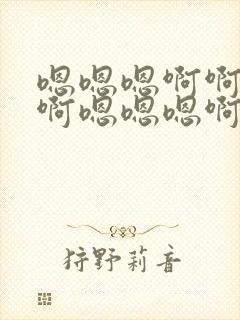 嗯嗯嗯啊啊
啊嗯嗯嗯啊
狩野莉音